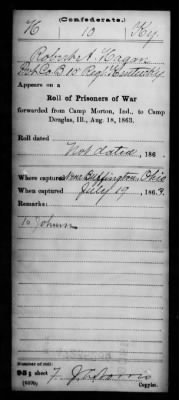 (Confederate.)
H 10 Ky.
Robert A. Hagan
Pvt Co. B 10 Reg't Kentucky
Appears on a
Roll of Prisoners of War
forwarded from Camp Morton, Ind., to Camp
Douglas, Ill., Aug. 18, 1863.
Roll dated
Not dated, 186 .
Where captured Near Buffington, Ohio
When captured July 19, 186
Remarks:
Number of roll:
95; sheet 7
(6090) Copyist.